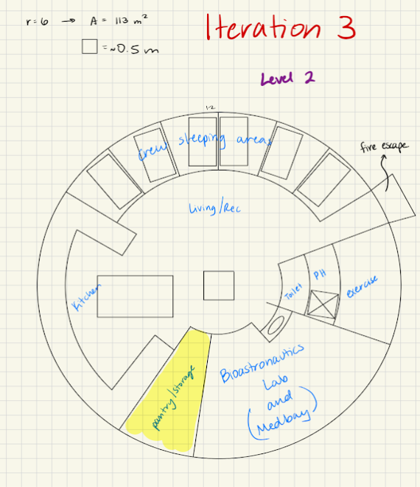 r=6 → A = 113 m²
□ = ~0.5 m
Iteration 3
Level 2
1-2
crew sleeping areas
fire escape
Living/Rec
Kitchen
Toilet
PH
exercise
pantry/storage
Bioastronautics
Lab
and
(Medbay)